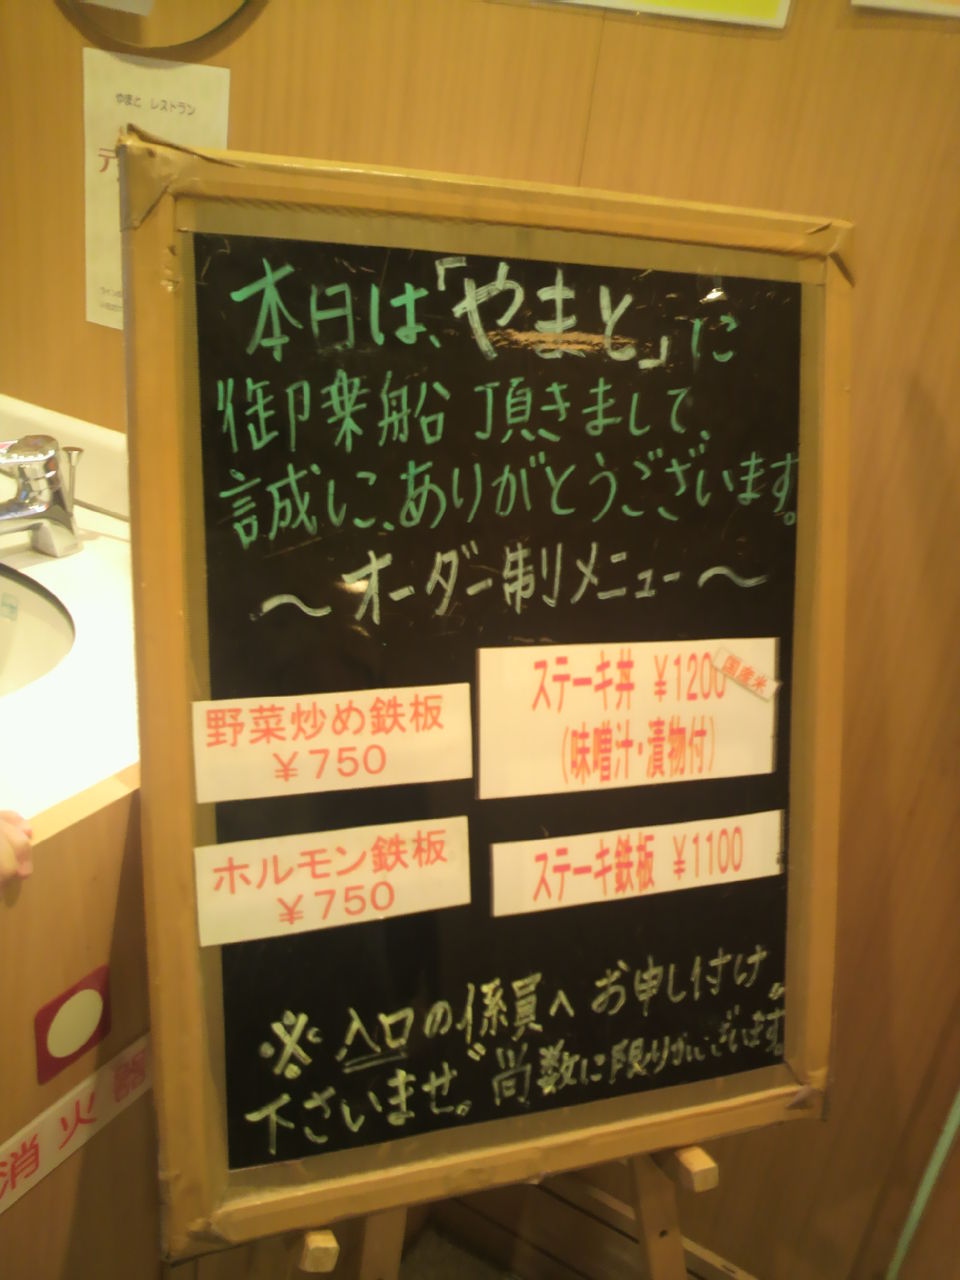 やまと レストラン
本日は、「やまと」に
御乗船 頂きまして、
誠に、ありがとうございます。
～オーダー制メニュー～
野菜炒め鉄板
￥750
ステーキ丼 ￥1200
国産米
(味噌汁・漬物付)
ホルモン鉄板
￥750
ステーキ鉄板 ￥1100
※入口の係員へお申し付け
下さいませ。尚数に限りがございます。
消火器